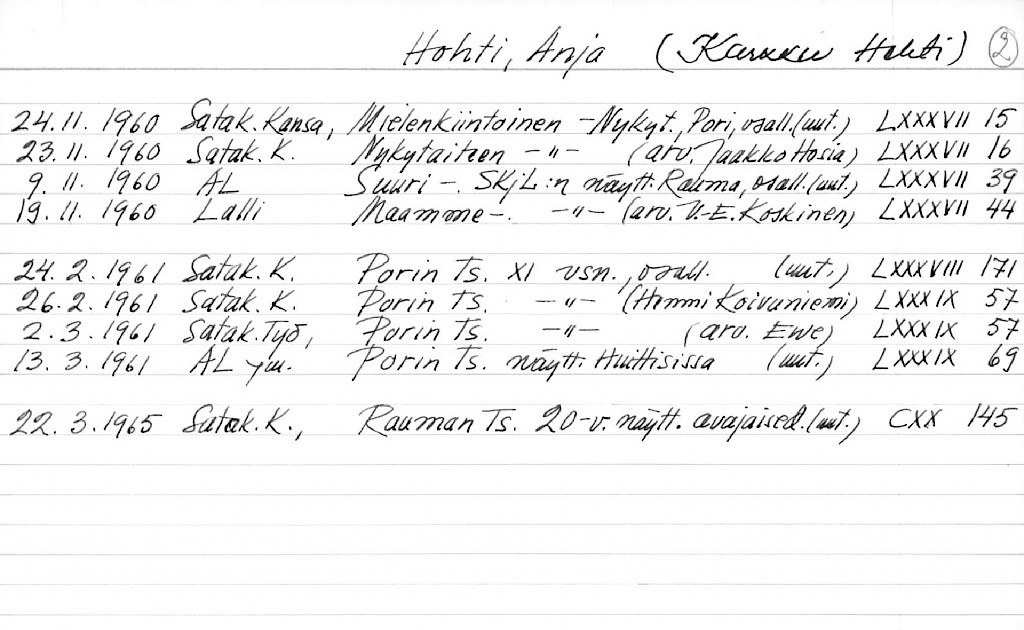 Hohti, Anja (Karkku Hohti) 2
24.11. 1960 Satak. Kansa, Mielenkiintoinen - Nykyt., Pori, osall. (uut.) LXXXVII 15
23.11. 1960 Satak. K. Nykytaiteen -"- (arv. Jaakko Hosia) LXXXVII 16
9.11. 1960 AL Suuri -. SKjL:n näytt. Rauma, osall. (uut.) LXXXVII 39
19.11. 1960 Lalli Maamme -. -"- (arv. V.-E. Koskinen) LXXXVII 44
24. 2. 1961 Satak. K. Porin Ts. XI vsn., osall. (uut.) LXXXVIII 171
26. 2. 1961 Satak. K. Porin Ts. -"- (Hemmi Koivuniemi) LXXXIX 57
2. 3. 1961 Satak. Työ, Porin Ts. -"- (arv. Ewe) LXXXIX 57
13. 3. 1961 AL ym. Porin Ts. näytt. Huittisissa (uut.) LXXXIX 69
22. 3. 1965 Satak. K., Rauman Ts. 20-v. näytt. avajaised. (uut.) CXX 145